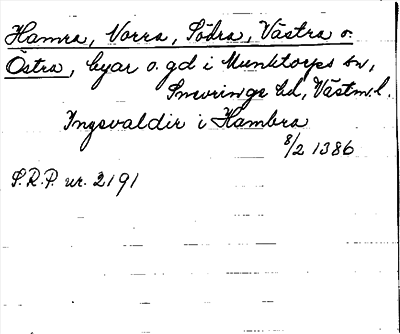 Hamra, Norra, Södra, Västra o.
Östra, byar o. gd i Munktorps sn,
Snevringe hd, Västm. l.
Ingevaldir i Hambra
8/2 1386
S.R.P. nr. 2191